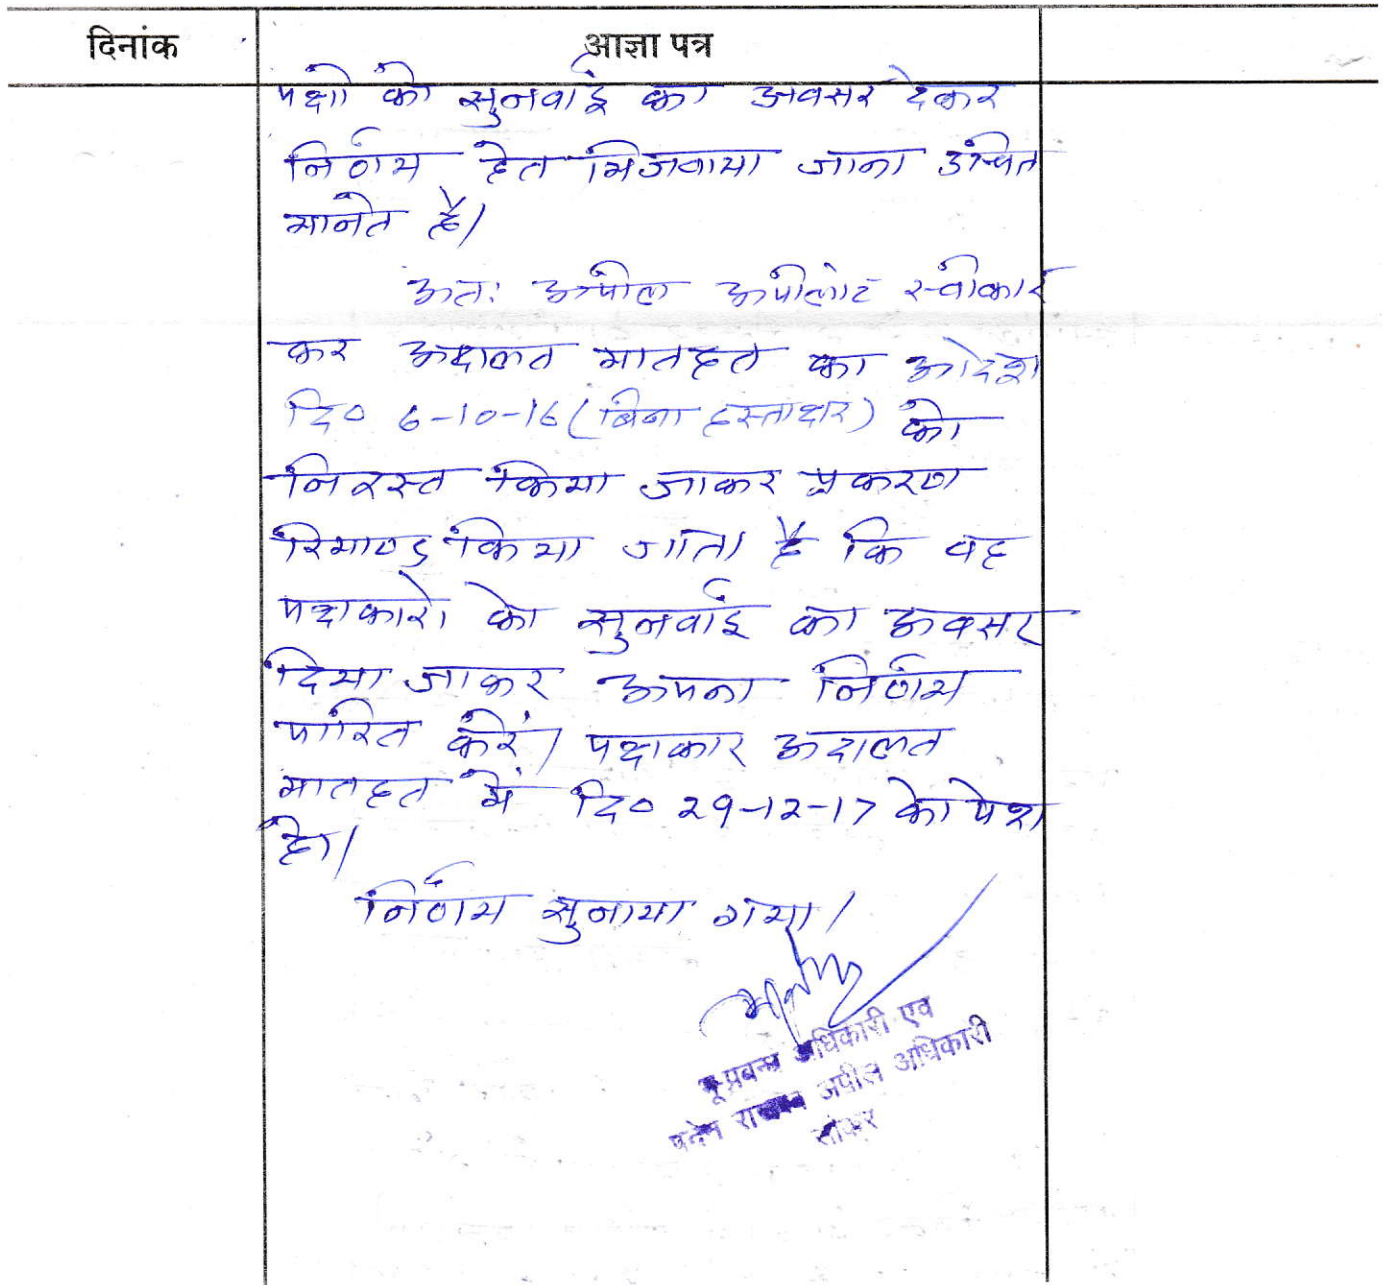 दिनांक
आज्ञा पत्र
पक्षो को सुनवाई का अवसर देकर
निर्णय हेतु भिजवाया जाना उचित
मानते है।
अतः अपील अपीलांट स्वीकार
कर अदालत मातहत का आदेश
दि० 6-10-16 (बिना हस्ताक्षर) को
निरस्त किया जाकर प्रकरण
रिमाण्ड किया जाता है कि वह
पक्षकारो को सुनवाई का अवसर
दिया जाकर अपना निर्णय
पारित करें। पक्षकार अदालत
मातहत में दि० 29-12-17 को पेश
हो।
निर्णय सुनाया गया।
भू-प्रबन्ध अधिकारी एवं
पदेन राजस्व अपील अधिकारी
सीकर